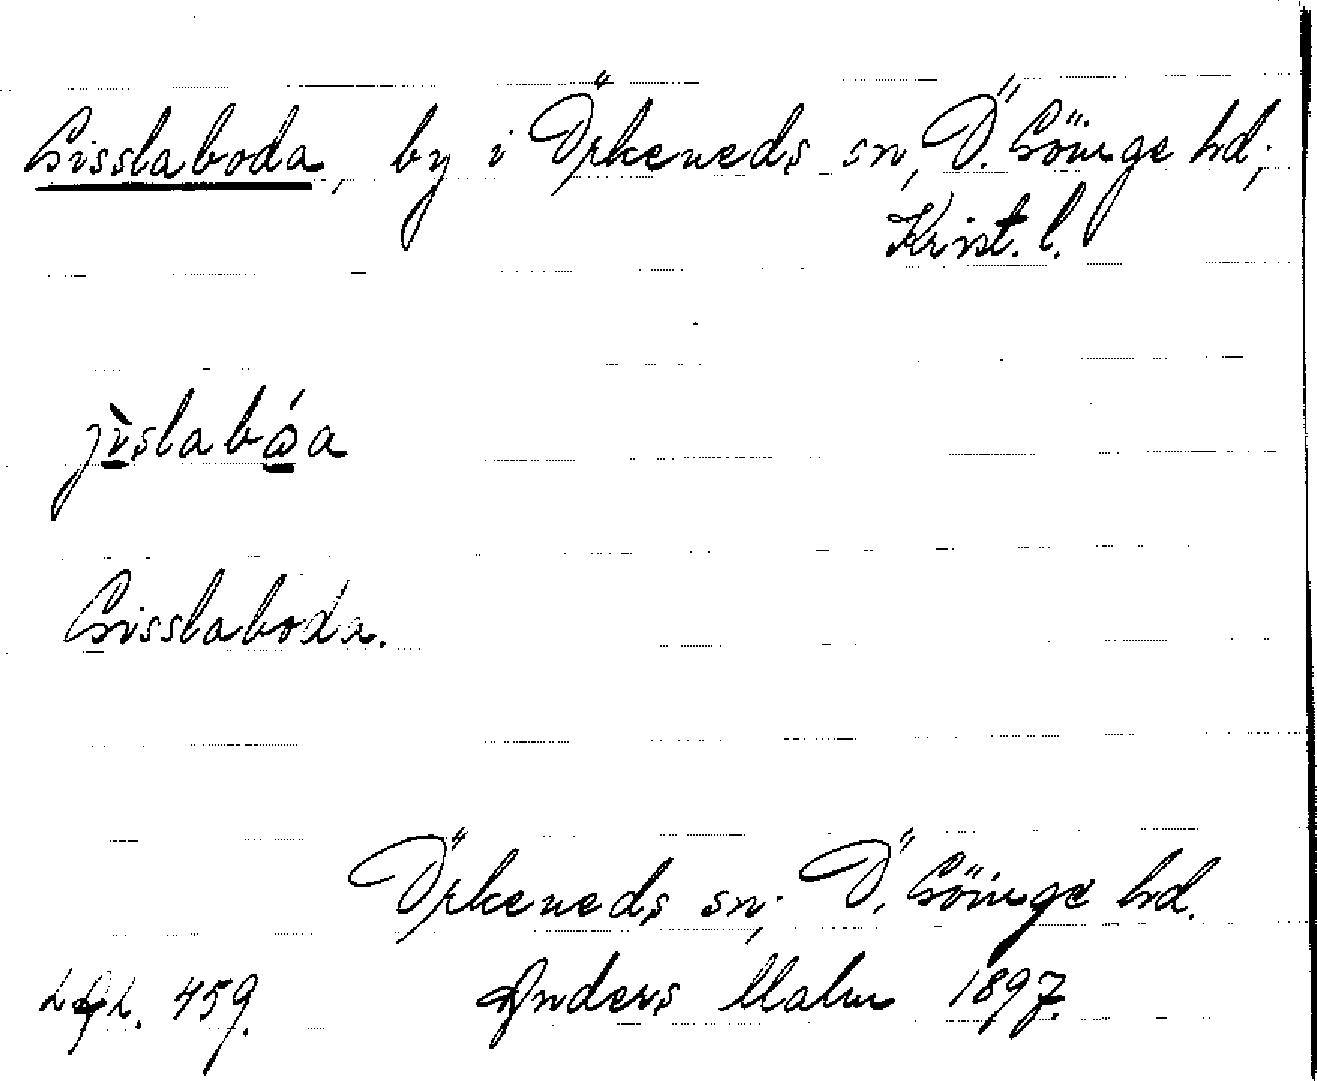 Gisslaboda, by i Örkeneds sn, Ö. Göinge hd;
Krist. l.
jìslabǻa
Gisslaboda.
Örkeneds sn; Ö. Göinge hd.
459. Anders Malm 1897.